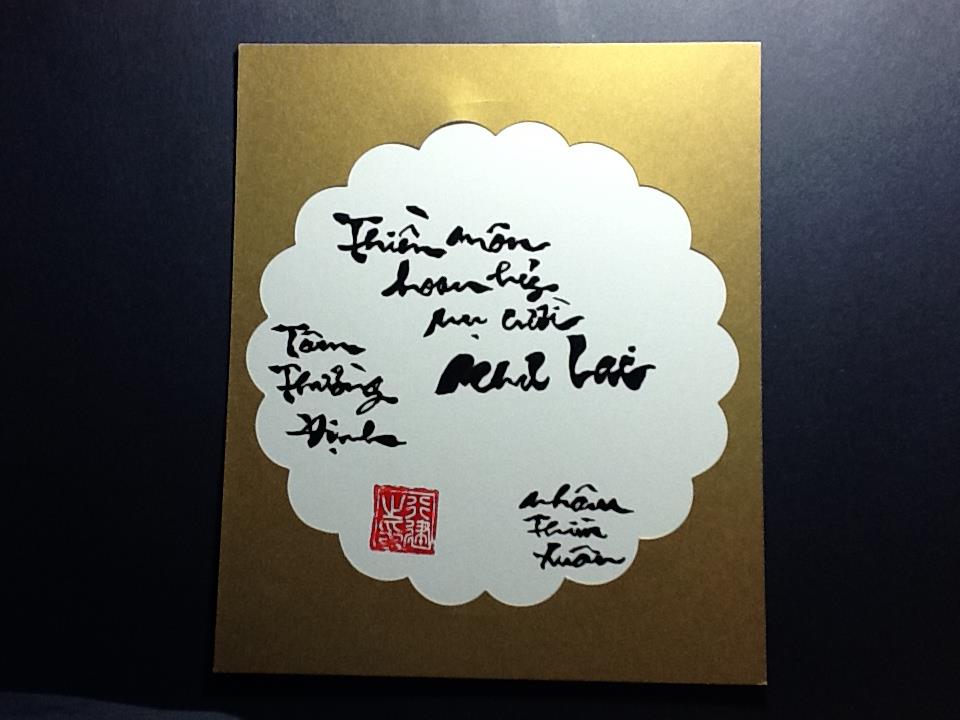 Thiền môn
hoan hỷ
nụ cười
Như Lai
Tâm
Thường
Định
Nhâm
Thìn
Xuân